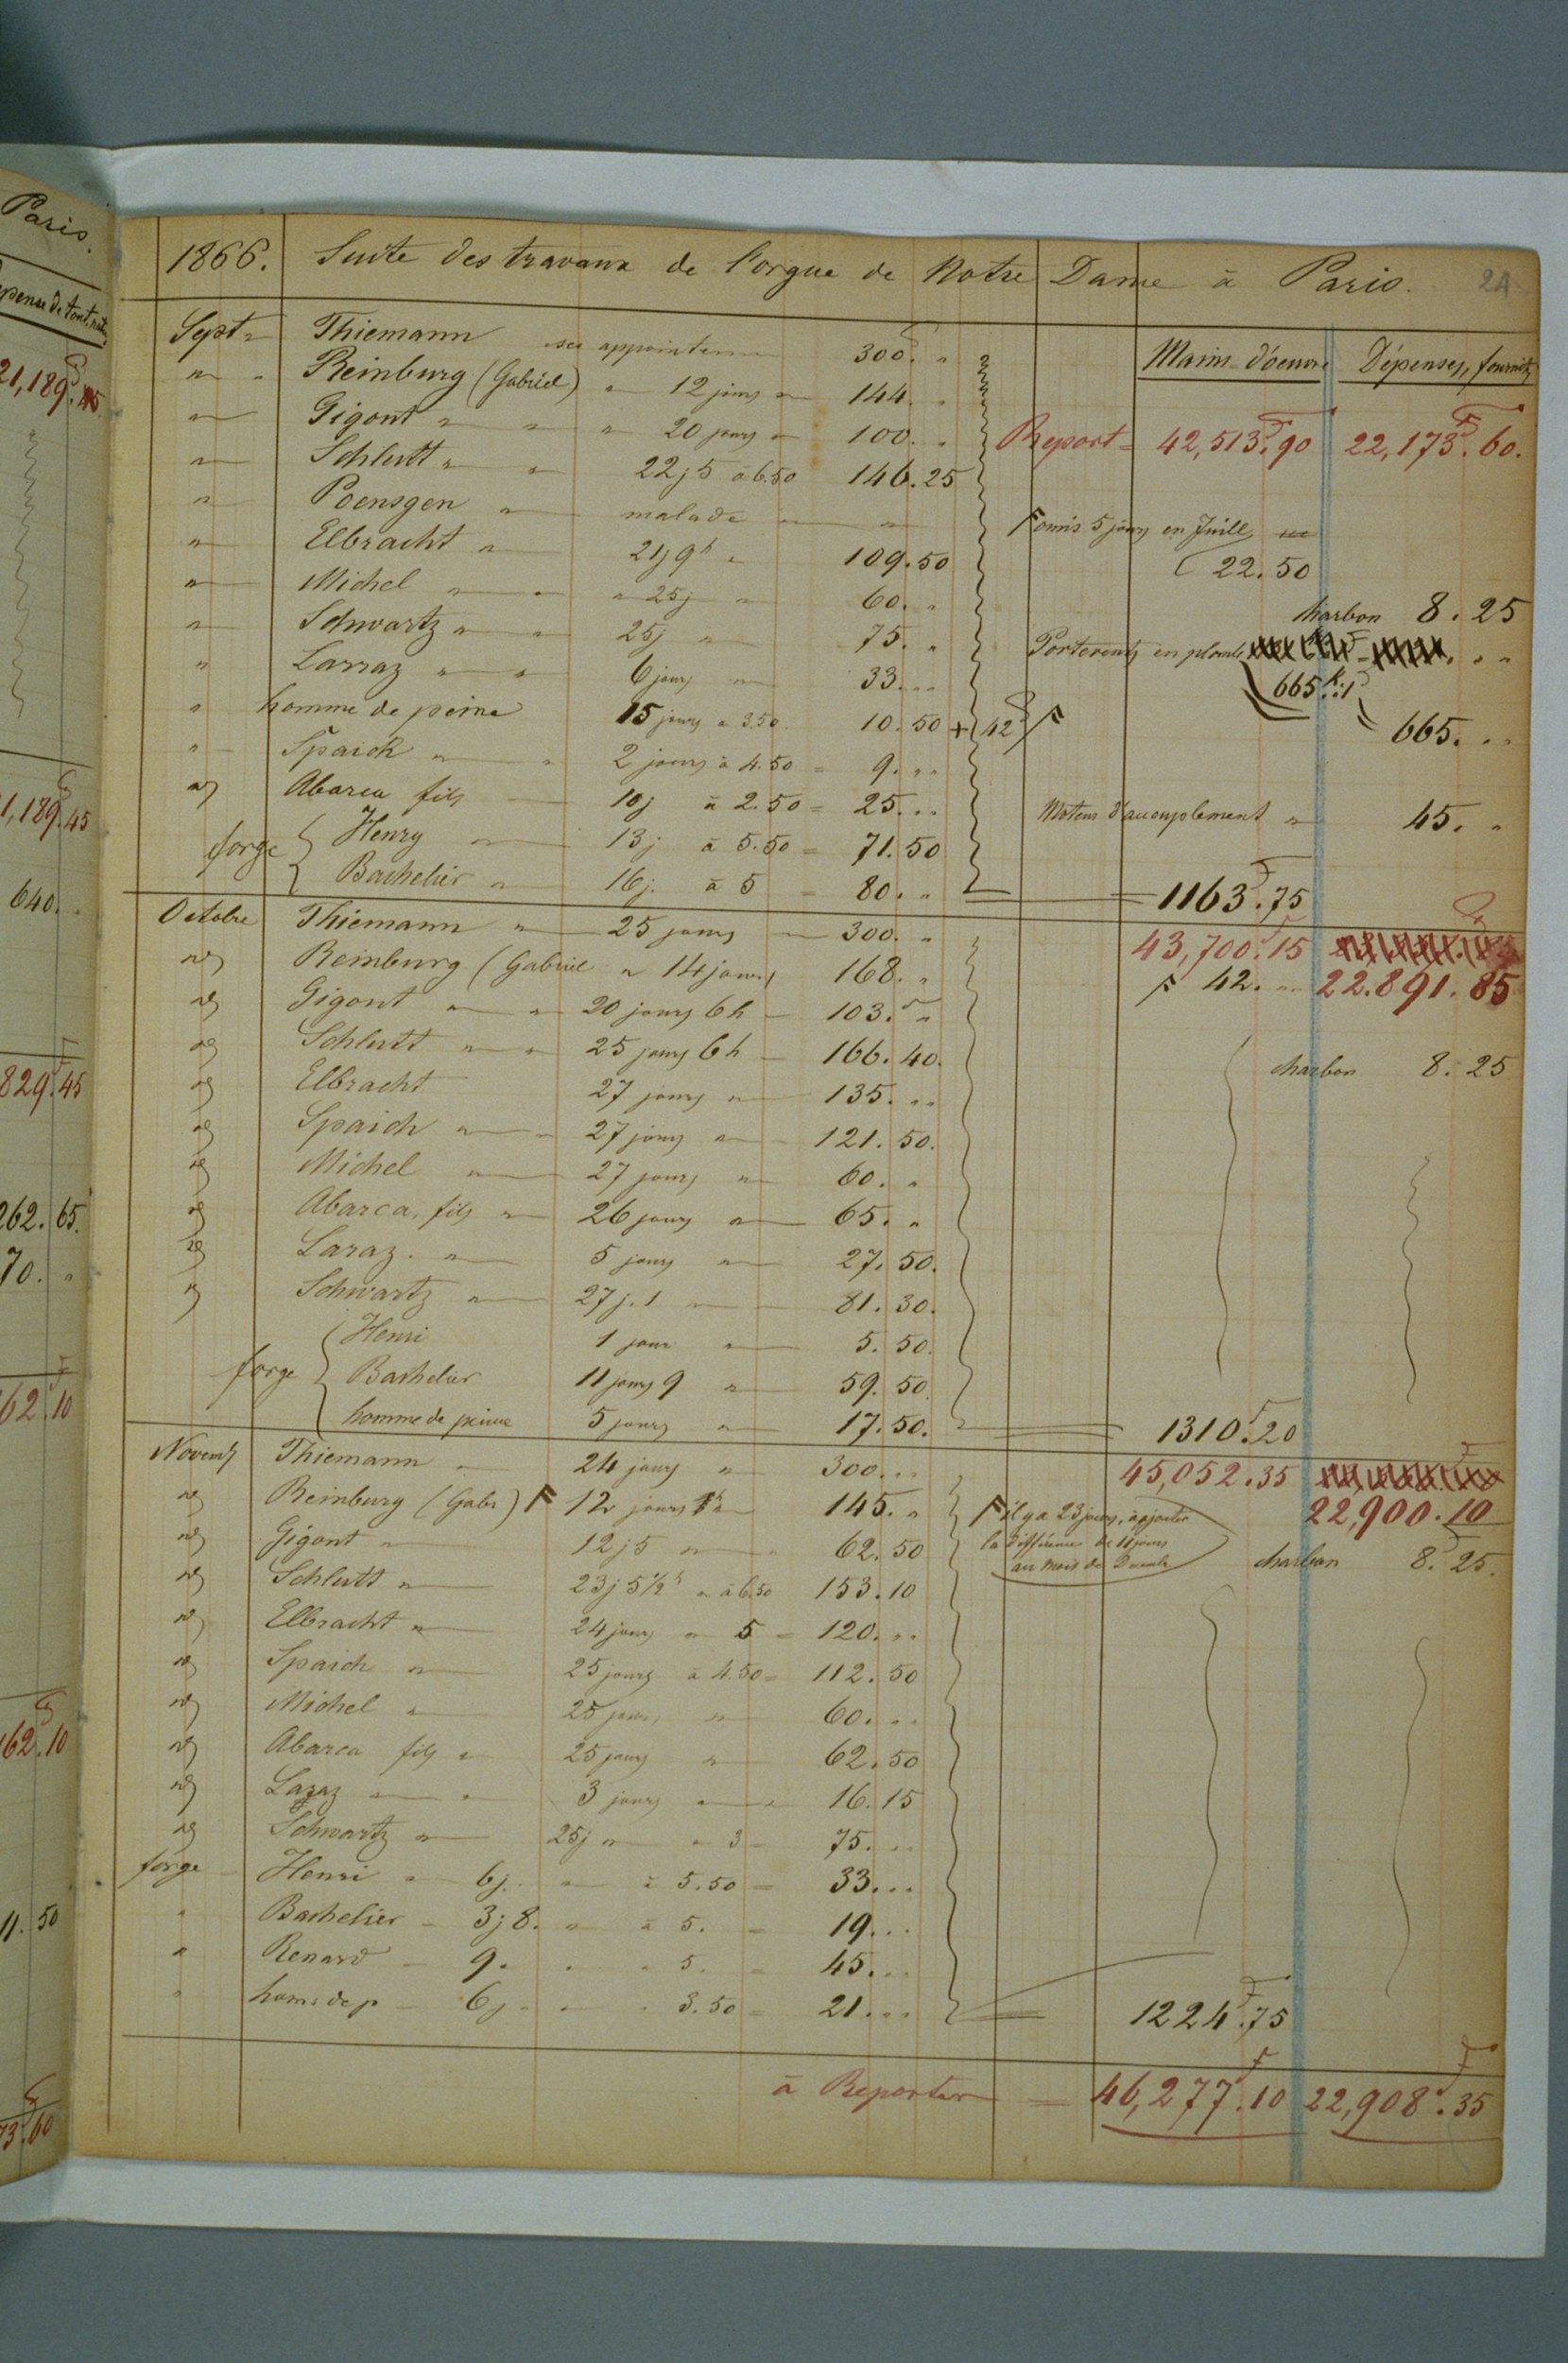 1866. Suite des travaux de l'orgue de Notre Dame à Paris. 24
Mains-d'oeuvre Dépenses, fournit
Sept Thiemann ses appointem 300. "
" Reinburg (Gabriel) " 12 jours " 144. "
Report = 42,513.90 22,173.60.
" Gigont " " " 20 jours " 100. "
" Schlutt " " 22j5 à 6.50 146.25
" Poensgen " malade " "
F omis 5 jours en Juill
" Elbracht " 21j9h " 109.50
22.50
" Michel " " " 25j " 60. "
charbon 8.25
" Schwartz " " 25j " 75. "
Portevents en plomb
665 k: 1
" Larraz " " 6 jours " 33...
665...
" homme de peine 15 jours à 3.50. 10.50 + 42 F
" Spaich " " 2 jours à 4.50 = 9...
" Abarca fils 10j à 2.50 = 25...
Moteur d'accouplement " 45. "
forge Henry " 13j à 5.50 = 71.50
Bachelier " 16j. à 5 = 80. "
= 1163.75
Octobre Thiemann " 25 jours 300. "
43,700.15
" Reinburg (Gabriel " 14 jours 168. "
F 42. " 22.891.85
" Gigont " " 20 jours 6h 103. "
" Schlutt " " 25 jours 6h 166.40.
charbon 8.25
" Elbracht 27 jours " 135...
" Spaich " 27 jours " 121.50.
" Michel " 27 jours " 60. "
" Abarca, fils " 26 jours " 65. "
" Laraz. " 5 jours " 27.50.
" Schwartz " 27j.1 " 81.30.
forge Henri 1 jour " 5.50.
Bachelier 11 jours 9 " 59.50.
homme de peine 5 jours " 17.50.
1310.20
Novemb Thiemann " 24 jours " 300...
45,052.35
" Reinburg (Gabr) F 12 jours 1h " 145. "
F il y a 23 jours, à ajouter
la différence de 11 jours
au mois de Decembre
22,900.10
" Gigont " 12j5 " 62.50
charbon 8.25.
" Schlutt " 23j 5 1/2 h " à 6.50 153.10
" Elbracht " 24 jours " 5 = 120...
" Spaich " 25 jours à 4.50 = 112.50
" Michel " 25 jours " 60...
" Abarca fils " 25 jours " 62.50
" Laraz " " 3 jours " 16.15
" Schwartz " 25j " " 3 = 75...
forge Henri " 6j. " à 5.50 = 33...
" Bachelier - 3j8. " à 5. = 19...
" Renard - 9. " " 5. = 45...
" hom: de p - 6j - " 3.50 = 21...
1224.75
à Reporter = 46,277.10 22,908.35
Paris.
21,189.45
1,189.45
640.
829.45
262.65.
70. "
62.10
162.10
11.50
73.60